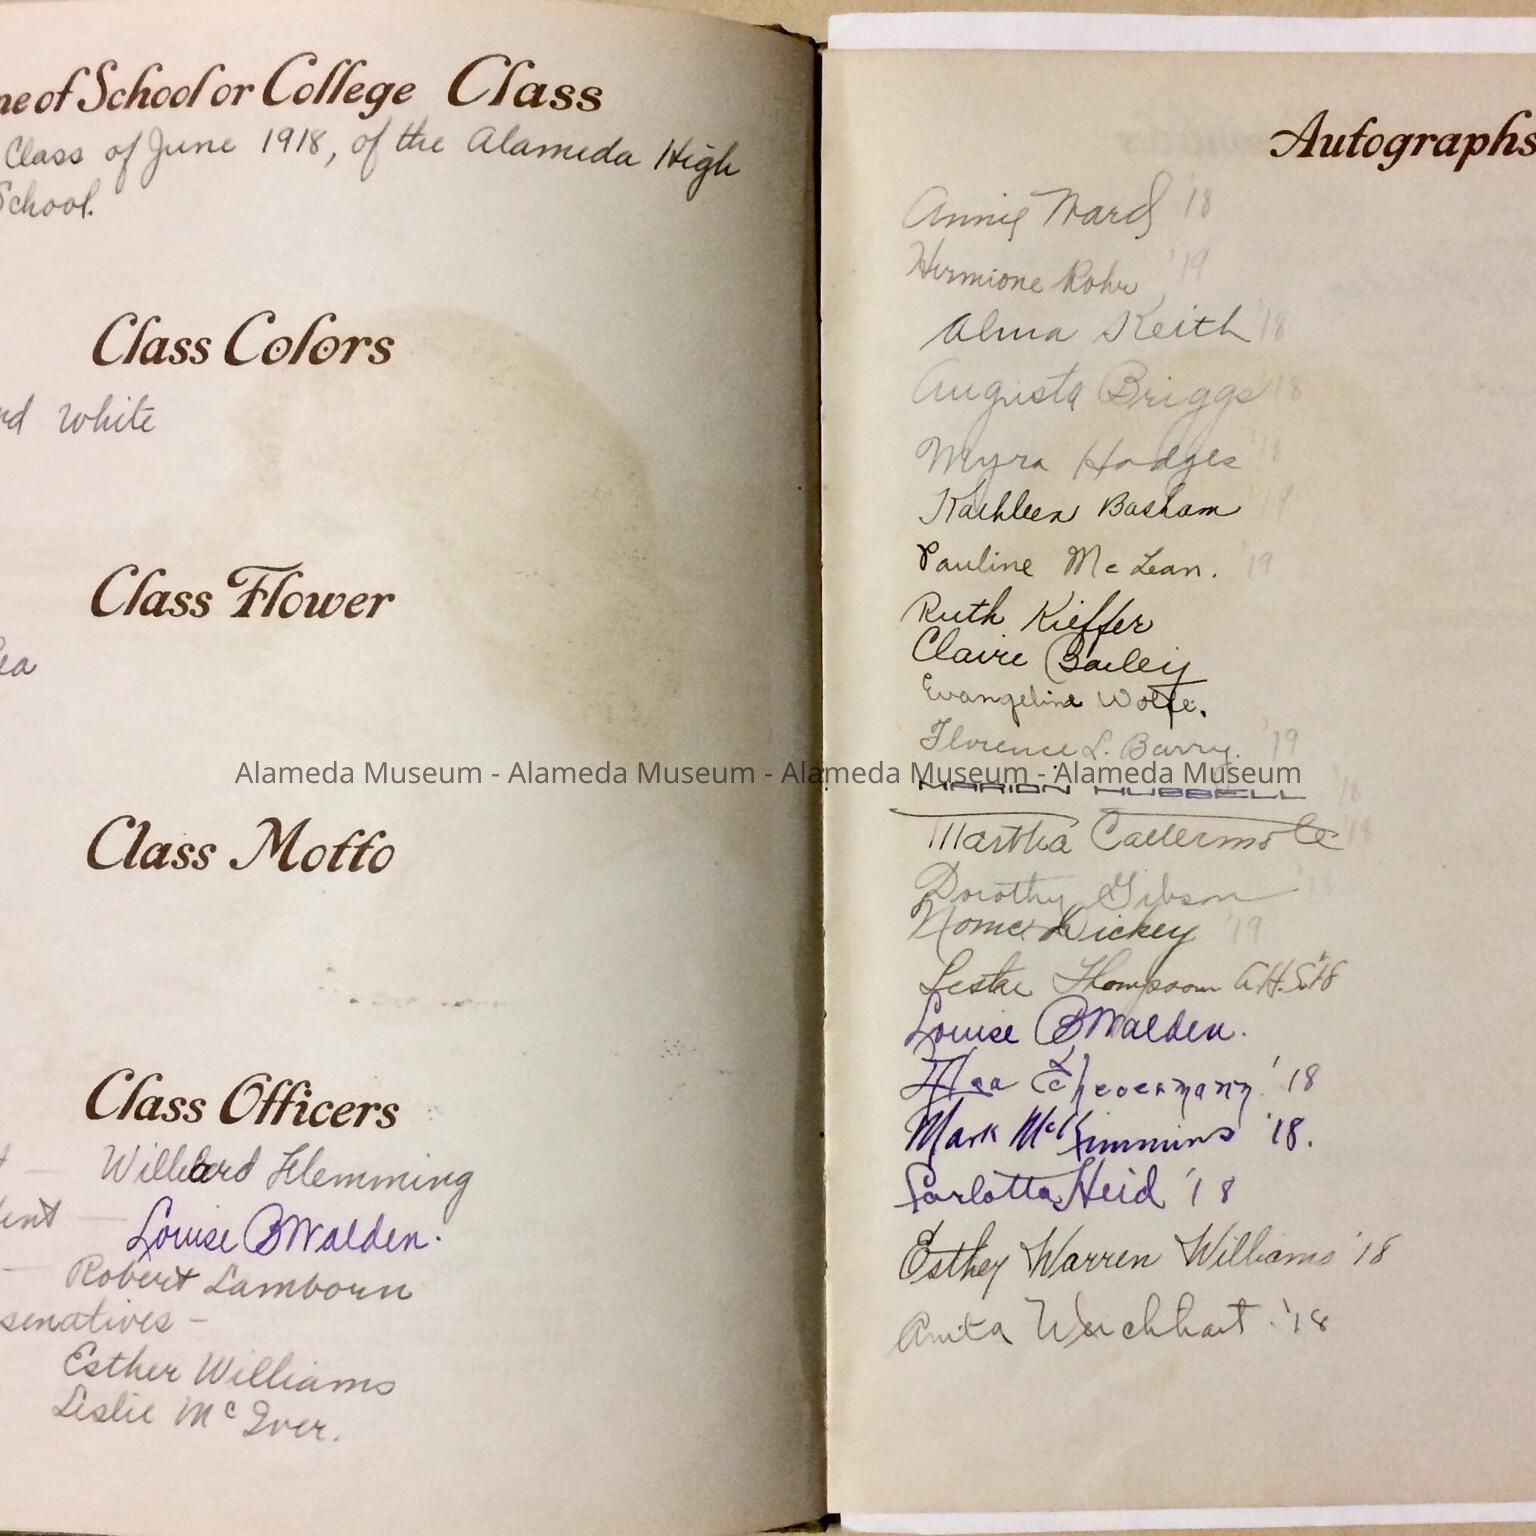 ne of School or College Class
Class of June 1918, of the Alameda High
School.
Class Colors
White
Class Flower
Class Motto
Class Officers
Willard Flemming
Louise B Walden.
Robert Lamborn
senatives -
Esther Williams
Leslie McIver.
Autographs
Annie Ward '18
Hermione Rohr, '19
Alma Keith '18
Augusta Briggs '18
Myra Hodges '18
Kathleen Basham '19
Pauline McLean. '19
Ruth Kieffer
Claire Bailey
Evangeline Wolfe.
Florence L. Barry. '19
Alameda Museum - Alameda Museum - Alameda Museum - Alameda Museum
MARION HUBBELL '18
Martha '18
Dorothy Gibson '18
Dickey '19
Thompson A.H.S. '18
Louise B Walden.
'18
Mark McKimmins '18.
Carlotta Heid '18
Esther Warren Williams '18
Anita '18